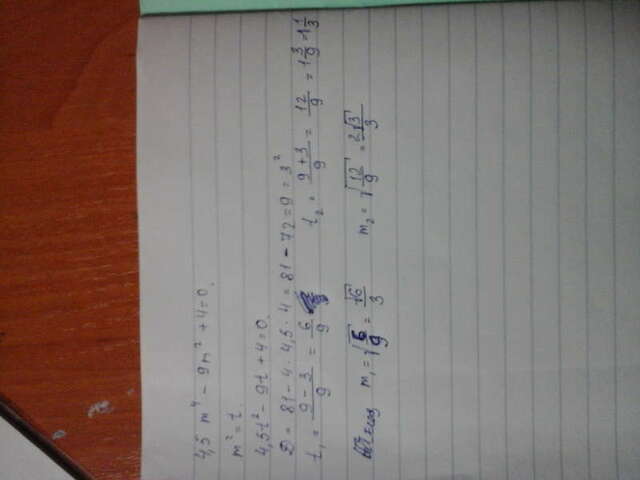 4,5 m⁴ - 9m² + 4 = 0.
m² = t.
4,5t² - 9t + 4 = 0.
D = 81 - 4·4,5·4 = 81 - 72 = 9 = 3²
t₁ = (9-3)/9 = 6/9 t₂ = (9+3)/9 = 12/9 = 1 3/9 = 1 1/3
m₁ = √(6/9) = √6/3 m₂ = √(12/9) = 2√3/3